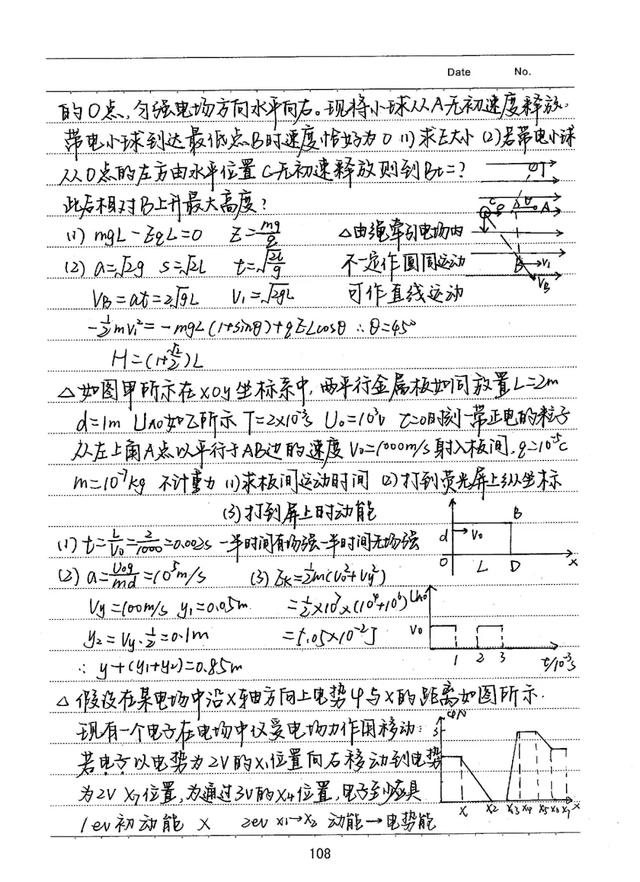 Date No.
的O点,匀强电场方向水平向右。现将小球从A无初速度释放.
带电小球到达最低点B时速度恰好为0 (1)求E大小 (2)若带电小球
从O点的左方由水平位置C无初速释放则到B t=?
此后相对B上升最大高度?
(1) mgL-EqL=0 E=mg/q △由绳牵引电场内
(2) a=√2g s=√2L t=√(2L/g) 不一定作圆周运动
VB=at=2√gL V1=√2gL 可作直线运动
-½mv1²=-mgL(1+sinθ)+qELcosθ ∴θ=45°
H=(1+√2/2)L
C O A
B V1
VB
△如图甲所示在xoy坐标系中,两平行金属板如何放置L=2m
d=1m UAO如乙所示 T=2×10⁻³s U0=10³V t=0时刻一带正电的粒子
从左上角A点以平行于AB边的速度V0=1000m/s射入板间,q=10⁻⁵C
m=10⁻⁷kg 不计重力 (1)求板间运动时间 (2)打到荧光屏上纵坐标
(3)打到屏上时动能
(1) t=L/V0=2/1000=0.002s 一半时间有场强一半时间无场强
(2) a=U0q/md=10⁵m/s (3) Ek=½m(V0²+Vy²)
Vy=100m/s y1=0.05m =½×10⁻⁷×(10⁴+10⁶)
y2=Vy·½=0.1m =5.05×10⁻²J
∴ y+(y1+y2)=0.85m
B
d V0
O L D x
UAO
V0
1 2 3 t/10⁻³s
△假设在某电场中沿X轴方向上电势φ与X的距离如图所示.
现有一个电子在电场中仅受电场力作用移动:
若电子以电势为2V的X1位置向右移动到电势
为2V X7位置,为通过3V的X4位置,电子至少应具
1ev初动能 × 2ev x1→x2 动能→电势能
φ/V
3
X X2 X3 X4 X5 X6 X7 X
108